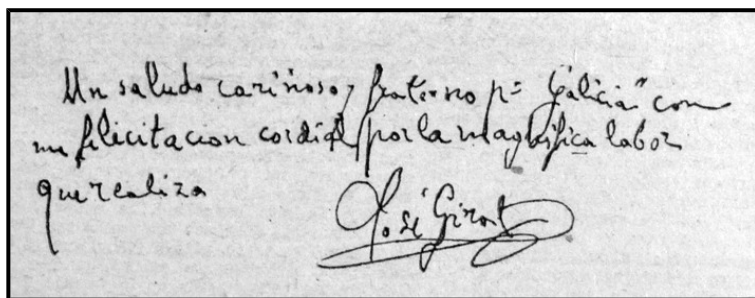 Un saludo cariñoso y fraterno pª "Galicia" con
mi felicitacion cordial por la magnifica labor
que realiza
José Giral